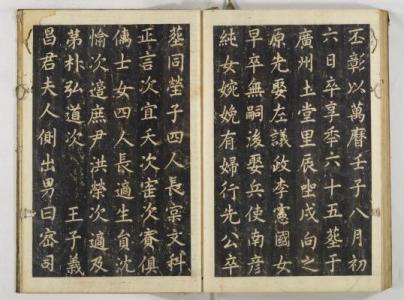 丕彰以萬曆壬子八月初
六日卒享秊六十五塟于
廣州土堂里辰坐戌向之
原先娶左議政李憲國女
早卒無嗣後娶兵使南彦
純女婉婉有婦行先公卒
塟同塋子四人長文科
正言次宜夭次次賓俱
儁士女四人長適生員沈
愉次適庶尹洪榮次適及
第朴弘道次 王子義
昌君夫人側出男曰宓司